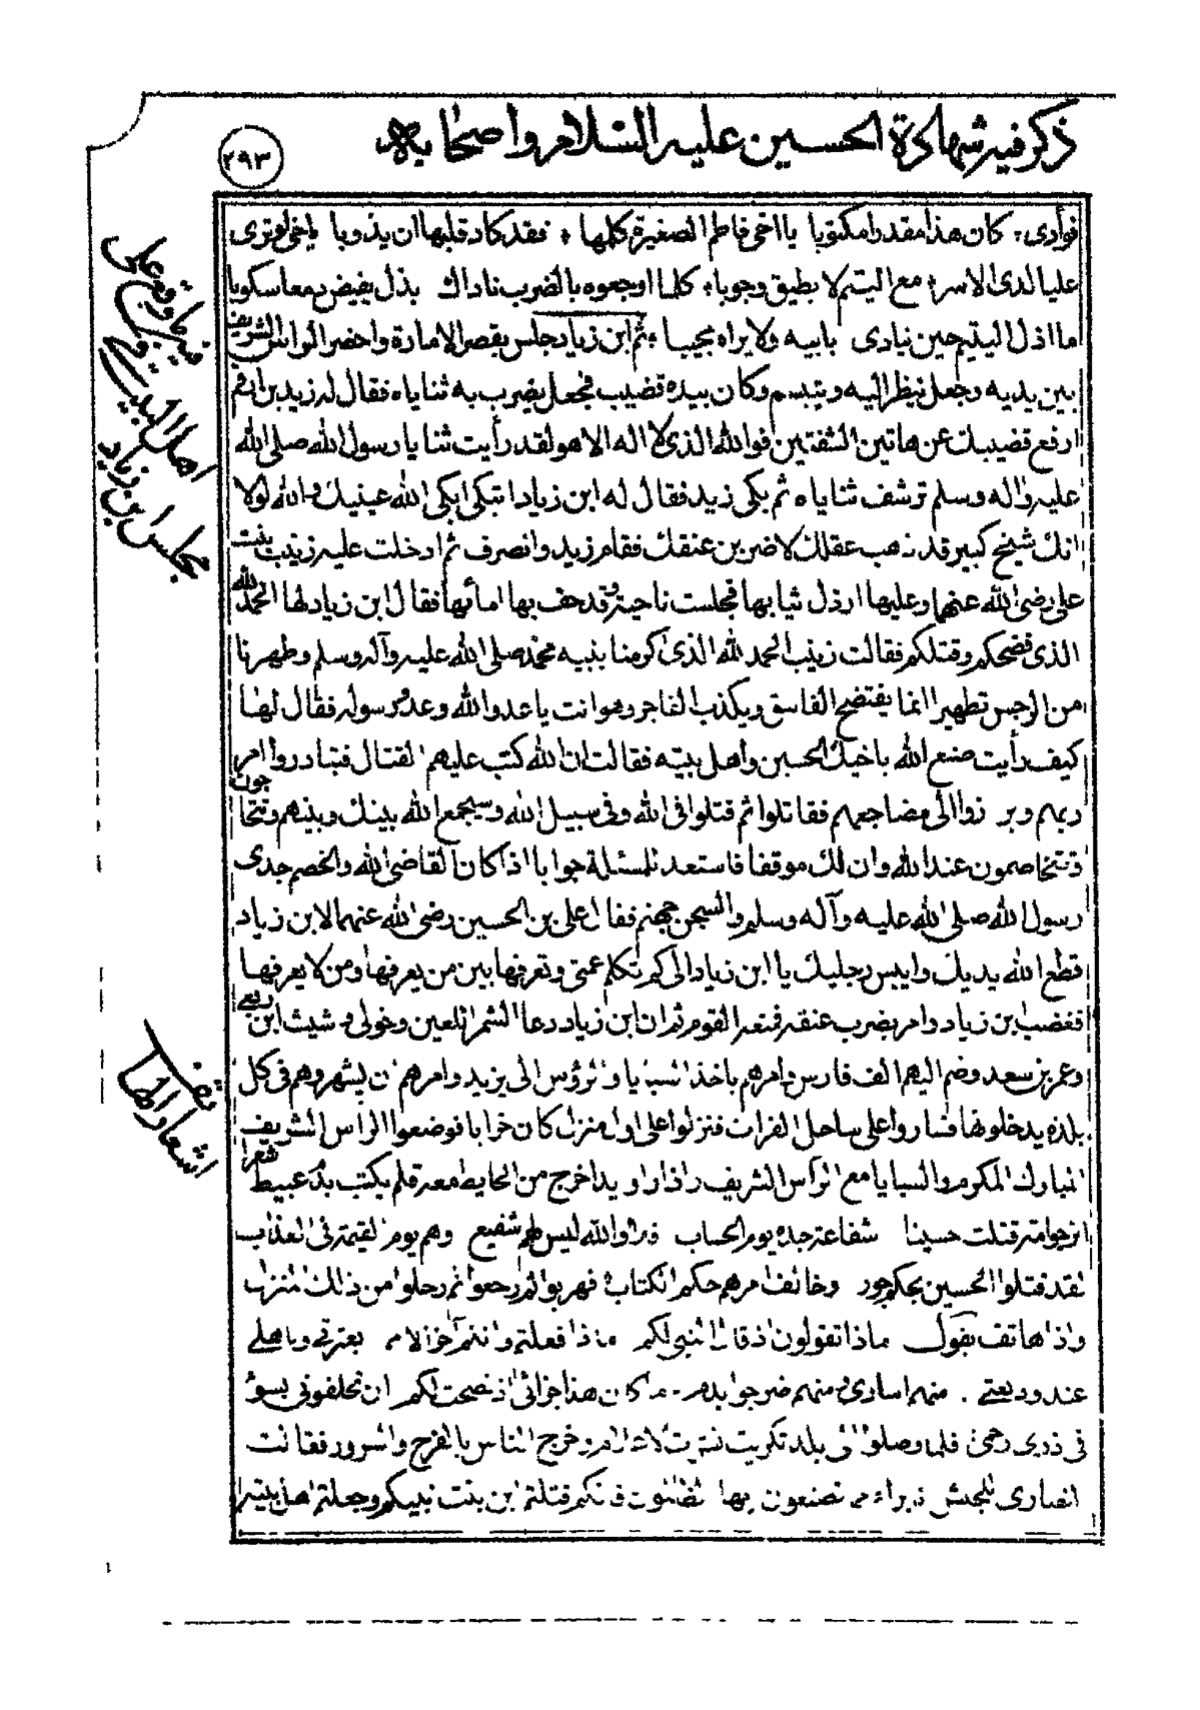 ذكر فيه شهادة الحسين عليه السلام واصحابه
٢٩٣
فؤادى، كان هذا مقدرا مكتوبا يا اخى فاطم الصغيرة كلمها، فقد كاد قلبها ان يذوبا يا خى لو ترى
عليا لدى الاسر مع اليتم لا يطيق وجوبا، كلما اوجعوه بالضرب ناداك بذل يفيض دمعا سكوبا
ما اذل اليتيم حين ينادى بابيه ولا يراه مجيبا، ثم ابن زياد جلس بقصر الامارة واحضر الراس الشريف
بين يديه وجعل ينظر اليه ويتبسم وكان بيده قضيب فجعل يضرب به ثناياه فقال له زيد بن ارقم
ارفع قضيبك عن هاتين الشفتين فوالله الذى لا اله الا هو لقد رأيت ثنايا رسول الله صلى الله
عليه واله وسلم ترشف ثناياه ثم بكى زيد فقال له ابن زياد اتبكى ابكى الله عينيك والله لولا
انك شيخ كبير قد ذهب عقلك لاضربن عنقك فقام زيد وانصرف ثم ادخلت عليه زينب بنت
على رضى الله عنهما وعليها ارذل ثيابها فجلست ناحية وقد حف بها امائها فقال ابن زياد لها الحمد لله
الذى فضحكم وقتلكم فقالت زينب الحمد لله الذى اكرمنا بنبيه محمد صلى الله عليه وآله وسلم وطهرنا
من الرجس تطهيرا انما يفتضح الفاسق ويكذب الفاجر وهو انت يا عدو الله وعدو رسوله فقال لها
كيف رأيت صنع الله باخيك الحسين واهل بيته فقالت ان الله كتب عليهم القتال فتبادروا امر
ربهم وبرزوا الى مضاجعهم فقاتلوا ثم قتلوا فى الله وفى سبيل الله وسيجمع الله بينك وبينهم وتتحاجون
وتتخاصمون عند الله وان لك موقفا فاستعد للمسئلة جوابا اذا كان القاضى الله والخصم جدى
رسول الله صلى الله عليه وآله وسلم والسجن جهنم فقال على بن الحسين رضى الله عنهما لابن زياد
قطع الله يديك وايبس رجليك يا ابن زياد الى كم تكلم عمتى وتعرفها بين من يعرفها ومن لا يعرفها
فغضب ابن زياد وامر بضرب عنقه فمنعه القوم ثم ان ابن زياد دعا الشمر اللعين وخولى وشيث ابن ربعى
وعمر بن سعد وضم اليهم الف فارس وامرهم باخذ السبايا والرؤس الى يزيد وامرهم ان يشهروهم فى كل
بلدة يدخلونها فساروا على ساحل الفرات فنزلوا على اول منزل كان خرابا فوضعوا الرأس الشريف
المبارك المكرم والسبايا مع الرأس الشريف واذا راو يدا خرج من الحايط معه قلم يكتب بدم عبيط شعرا
اترجوا امة قتلت حسينا شفاعة جده يوم الحساب فلا والله ليس لهم شفيع وهم يوم القيمة فى العذاب
لقد قتلوا الحسين بحكم جور وخالف امرهم حكم الكتاب فهربوا ثم رجعوا ثم رحلوا من ذلك المنزل
واذا هاتف يقول ماذا تقولون اذ قال النبى لكم ماذا فعلتم وانتم آخر الامم بعترتى وباهلى
عند وديعتى منهم اسارى ومنهم ضرجوا بدم ما كان هذا جزائى اذ نصحت لكم ان تخلفونى بسوء
فى ذوى رحمى فلما وصلوا الى بلد تكريت وخرج الناس بالفرح والسرور فقالت
النصارى للجيش براء مما تصنعون ايها الظالمون فانكم قتلتم ابن بنت نبيكم وجعلتم اهل بيته
فيه ما وقع على
اهل البيت فى
مجلس ابن زياد
اشعار الهاتف